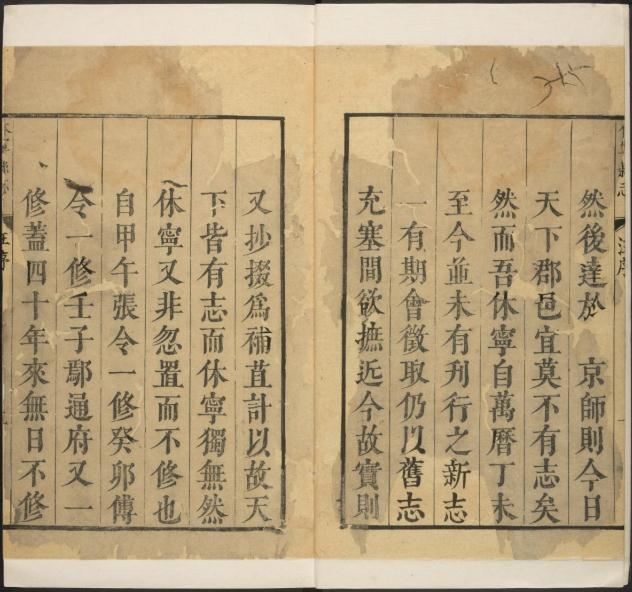 然後達於　京師則今日
天下郡邑宜莫不有志矣
然而吾休寧自萬曆丁未
至今並未有刋行之新志
一有期會徵取仍以舊志
充塞間欲摭近今故實則
又抄掇爲補苴計以故天
下皆有志而休寧獨無然
休寧又非忽置而不修也
自甲午張令一修癸卯傅
令一修壬子鄢通府又一
修蓋四十年來無日不修